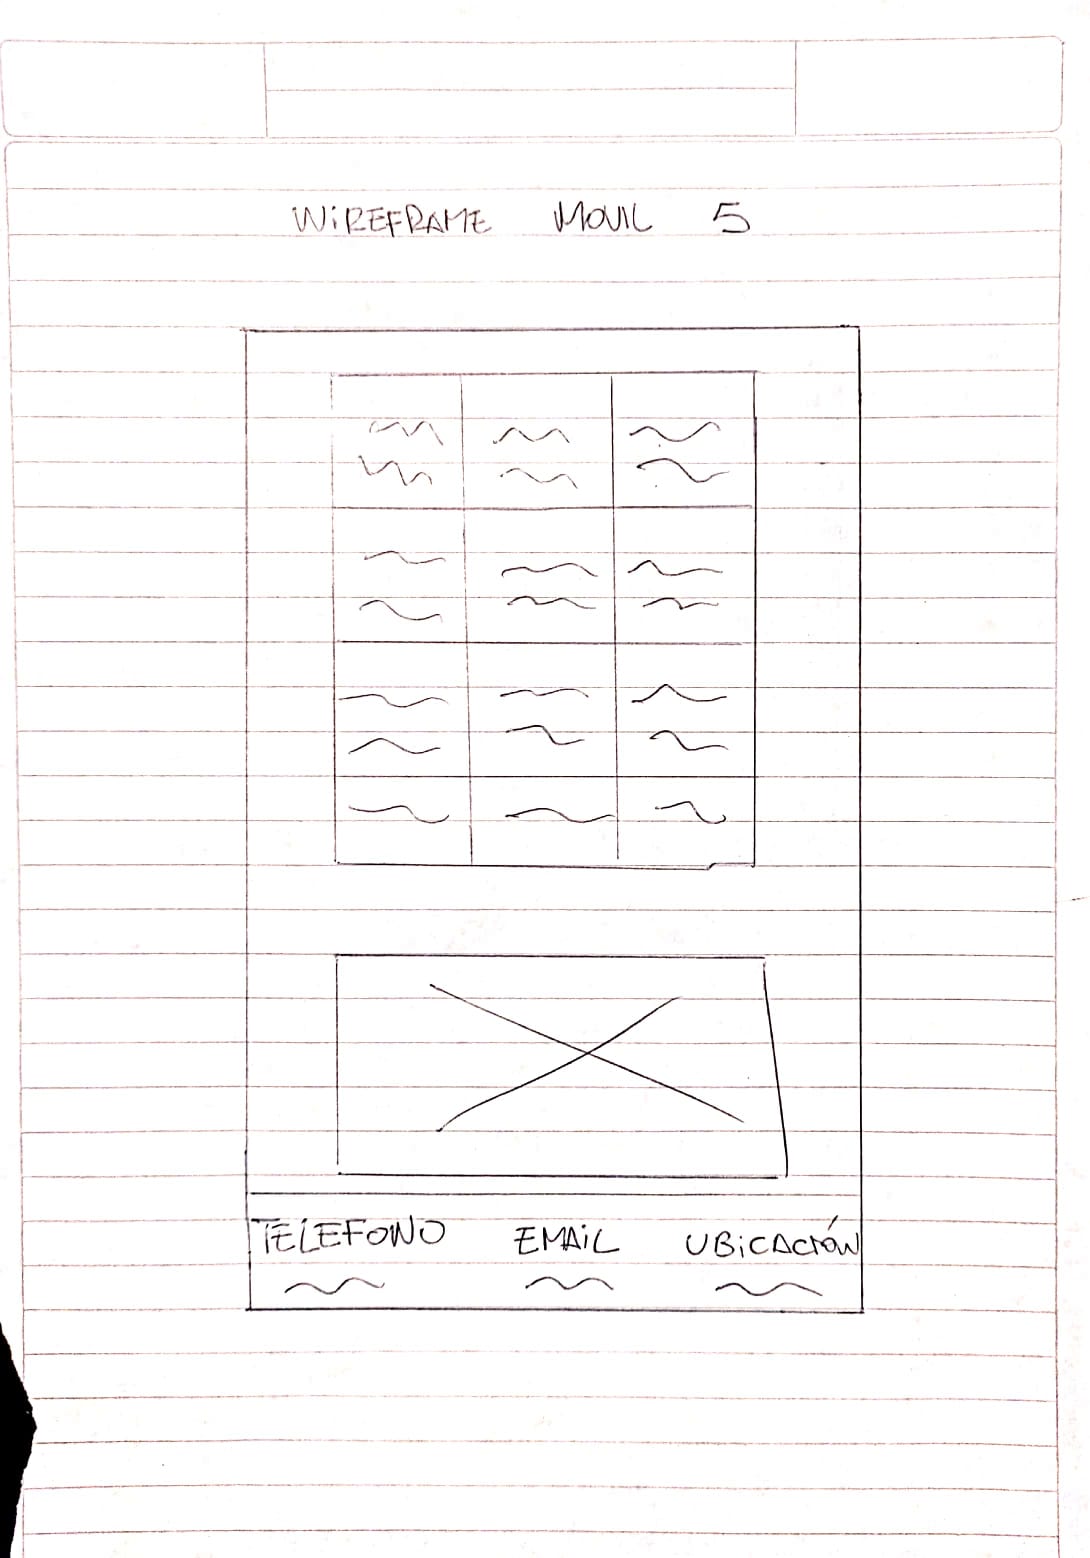 WiREFRAME MOVIL 5
TELEFONO EMAiL UBiCACIÓN